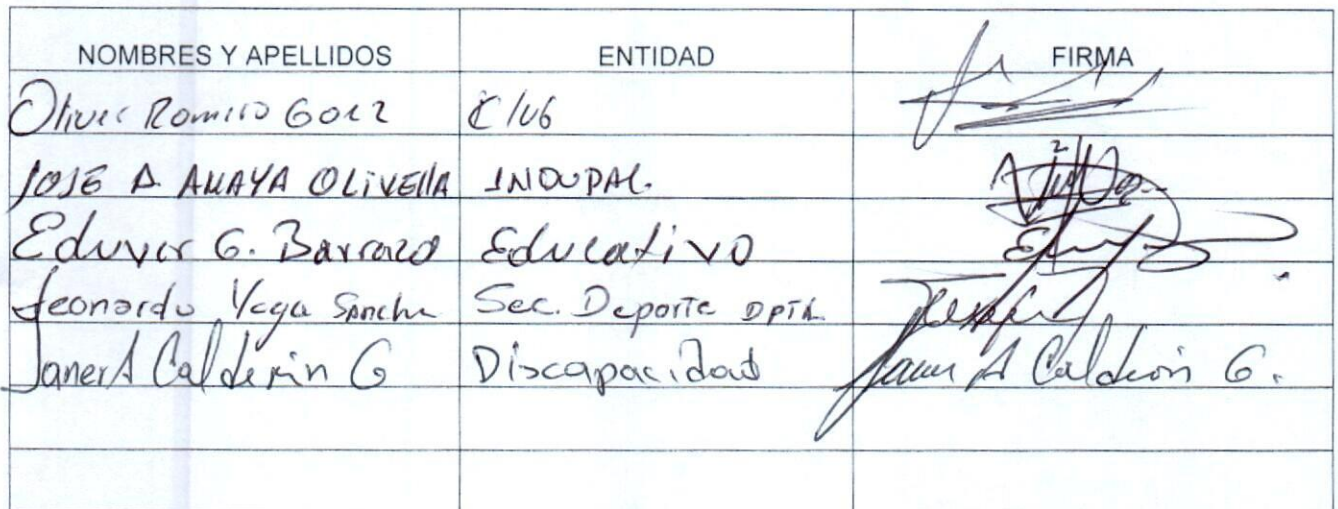 NOMBRES Y APELLIDOS ENTIDAD FIRMA
Romero Club
JOSE A. AMAYA OLIVELLA INDUPAL.
Eduver G. Barrazo Educativo
Leonardo Vega Sanche Sec. Deporte DPTAL
Janer A Calderón G Discapacidad Janer A Calderón G.